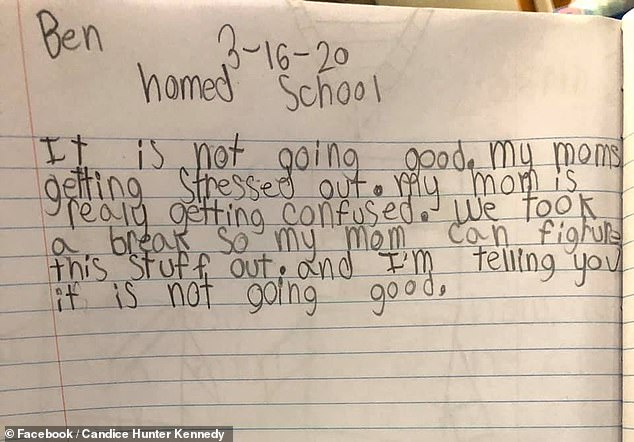 Ben
3-16-20
homed School
It is not going good. my moms
getting stressed out. My mom is
realy getting confused. We took
a break so my mom can fighure
this stuff out. and I'm telling you
it is not going good.
© Facebook / Candice Hunter Kennedy